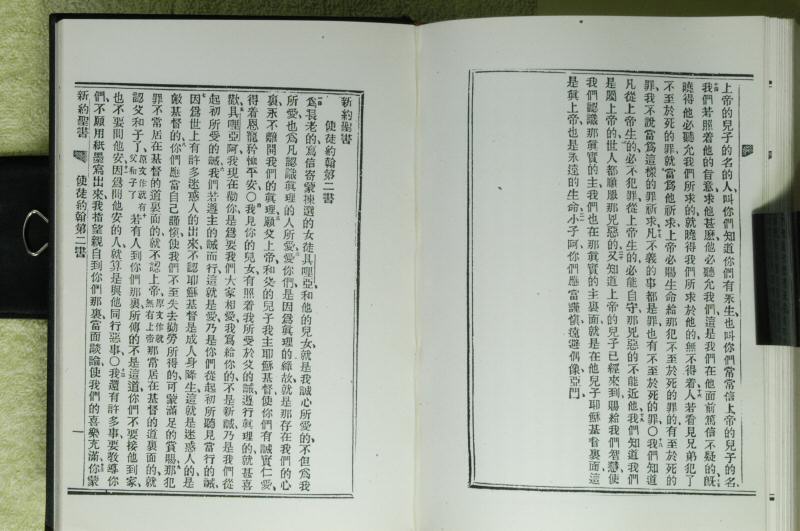 上帝的兒子的名的人、叫你們知道你們有永生、也叫你們常常信上帝的兒子的名、
我們若照着他的旨意求他甚麽、他必聽允我們、這是我們在他面前篤信不疑的、旣
曉得他必聽允我們所求的、就曉得我們所求於他的無不得着、人若看見兄弟犯了
不至於死的罪、就當爲他祈求、上帝必賜生命給那犯不至於死的罪的、有至於死的
罪、我不說當爲這樣的罪祈求、凡不義的事都是罪、也有不至於死的罪○我們知道
凡從上帝生的、必不犯罪、從上帝生的、必能自守、那兇惡的不能近他、我們知道我們
是屬上帝的、世人都順服那兇惡的、又知道上帝的兒子已經來到、賜給我們智慧、使
我們認識那眞實的主、我們也在那眞實的主裏面、就是在他兒子耶穌基督裏面、這
是眞上帝、也是永遠的生命、小子阿、你們應當謹愼、遠避偶像、亞門、
新約聖書
使徒約翰第二書
爲長老的、寫信寄蒙揀選的女徒具哩亞、和他的兒女、就是我誠心所愛的、不但爲我
所愛、也爲凡認識眞理的人所愛、愛你們、是因爲眞理的緣故、就是那存在我們的心
裏永不離開我們的眞理、願父上帝、和父的兒子我主耶穌基督、使你們有誠實仁愛、
得着恩寵矜憐平安○我見你的兒女、有照着我所受於父的誡、遵行眞理的、就甚喜
歡、具哩亞阿、我現在勸你、是爲要我們大家相愛、我寫給你的不是新誡、乃是我們從
起初所受的誡、我們若遵主的誡而行、這就是愛、乃是你們從起初所聽見當行的誡、
因爲世上有許多迷惑人的出來、不認耶穌基督是成人身降生、這就是迷惑人的、是
敵基督的、你們應當自己謹愼、使我們不至失去勤勞所得的、可蒙滿足的賞賜、那犯
罪不常居在基督的道裏面的、就不認上帝、原文作就無有上帝那常居在基督的道裏面的、就
認父和子了、原文作就有父和子了若有人到你們那裏、所傳的不是這道、你們不要接他到家、
也不要問他安、因爲問他安的人、就算是與他同行惡事○我還有許多事要敎導你
們、不願用紙墨寫出來、我指望親自到你們那裏、當面談論、使我們的喜樂充滿、你蒙
新約聖書
使徒約翰第二書
一